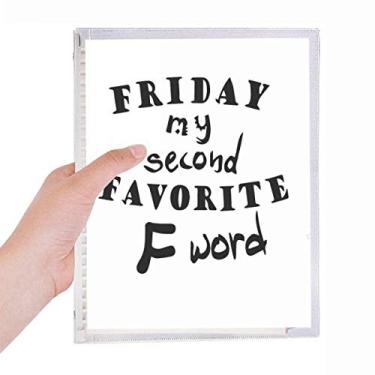 FRIDAY
my
second
FAVORITE
F word